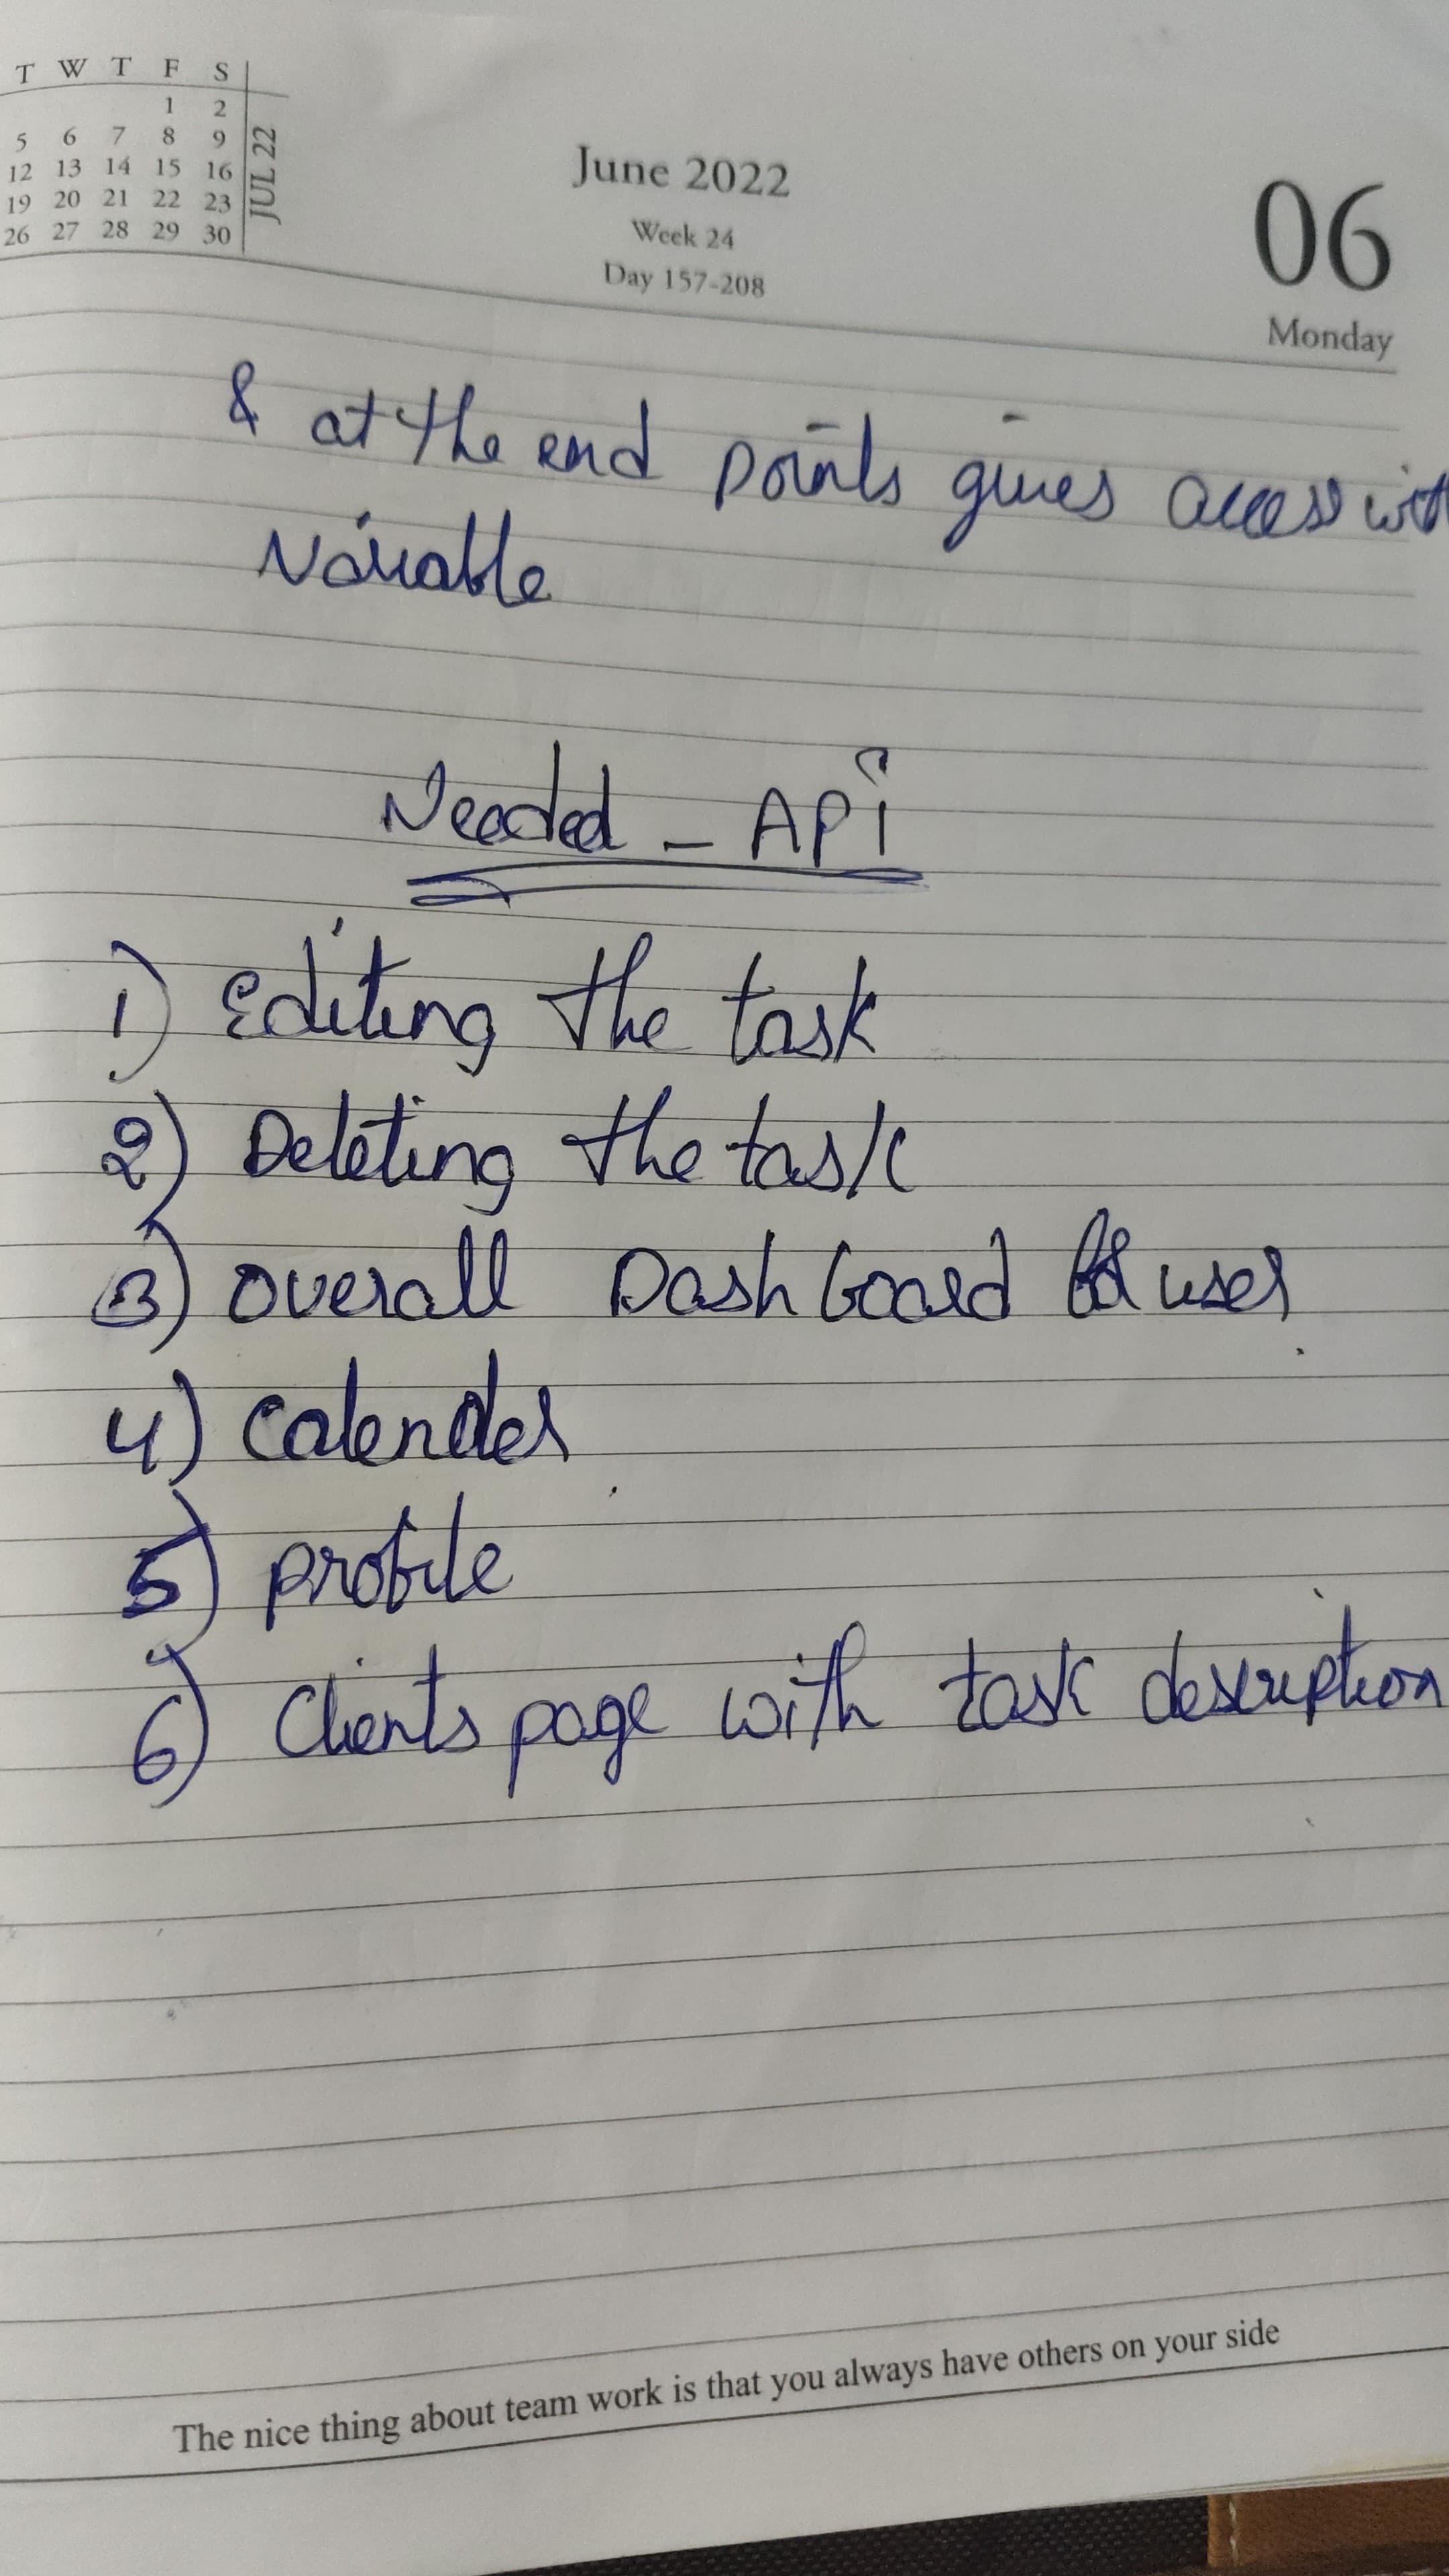 T W T F S
1 2
5 6 7 8 9
12 13 14 15 16
19 20 21 22 23
26 27 28 29 30
JUL 22
June 2022
Week 24
Day 157-208
06
Monday
& at the end points gives access with
Variable
Needed - API
1) Editing the task
2) Deleting the task
3) Overall Dashboard for user
4) Calender
5) profile
6) Clients page with task description
The nice thing about team work is that you always have others on your side